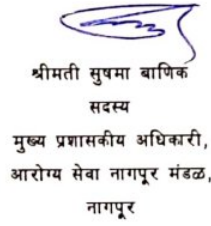 श्रीमती सुषमा बाणिक
सदस्य
मुख्य प्रशासकीय अधिकारी,
आरोग्य सेवा नागपूर मंडळ,
नागपूर